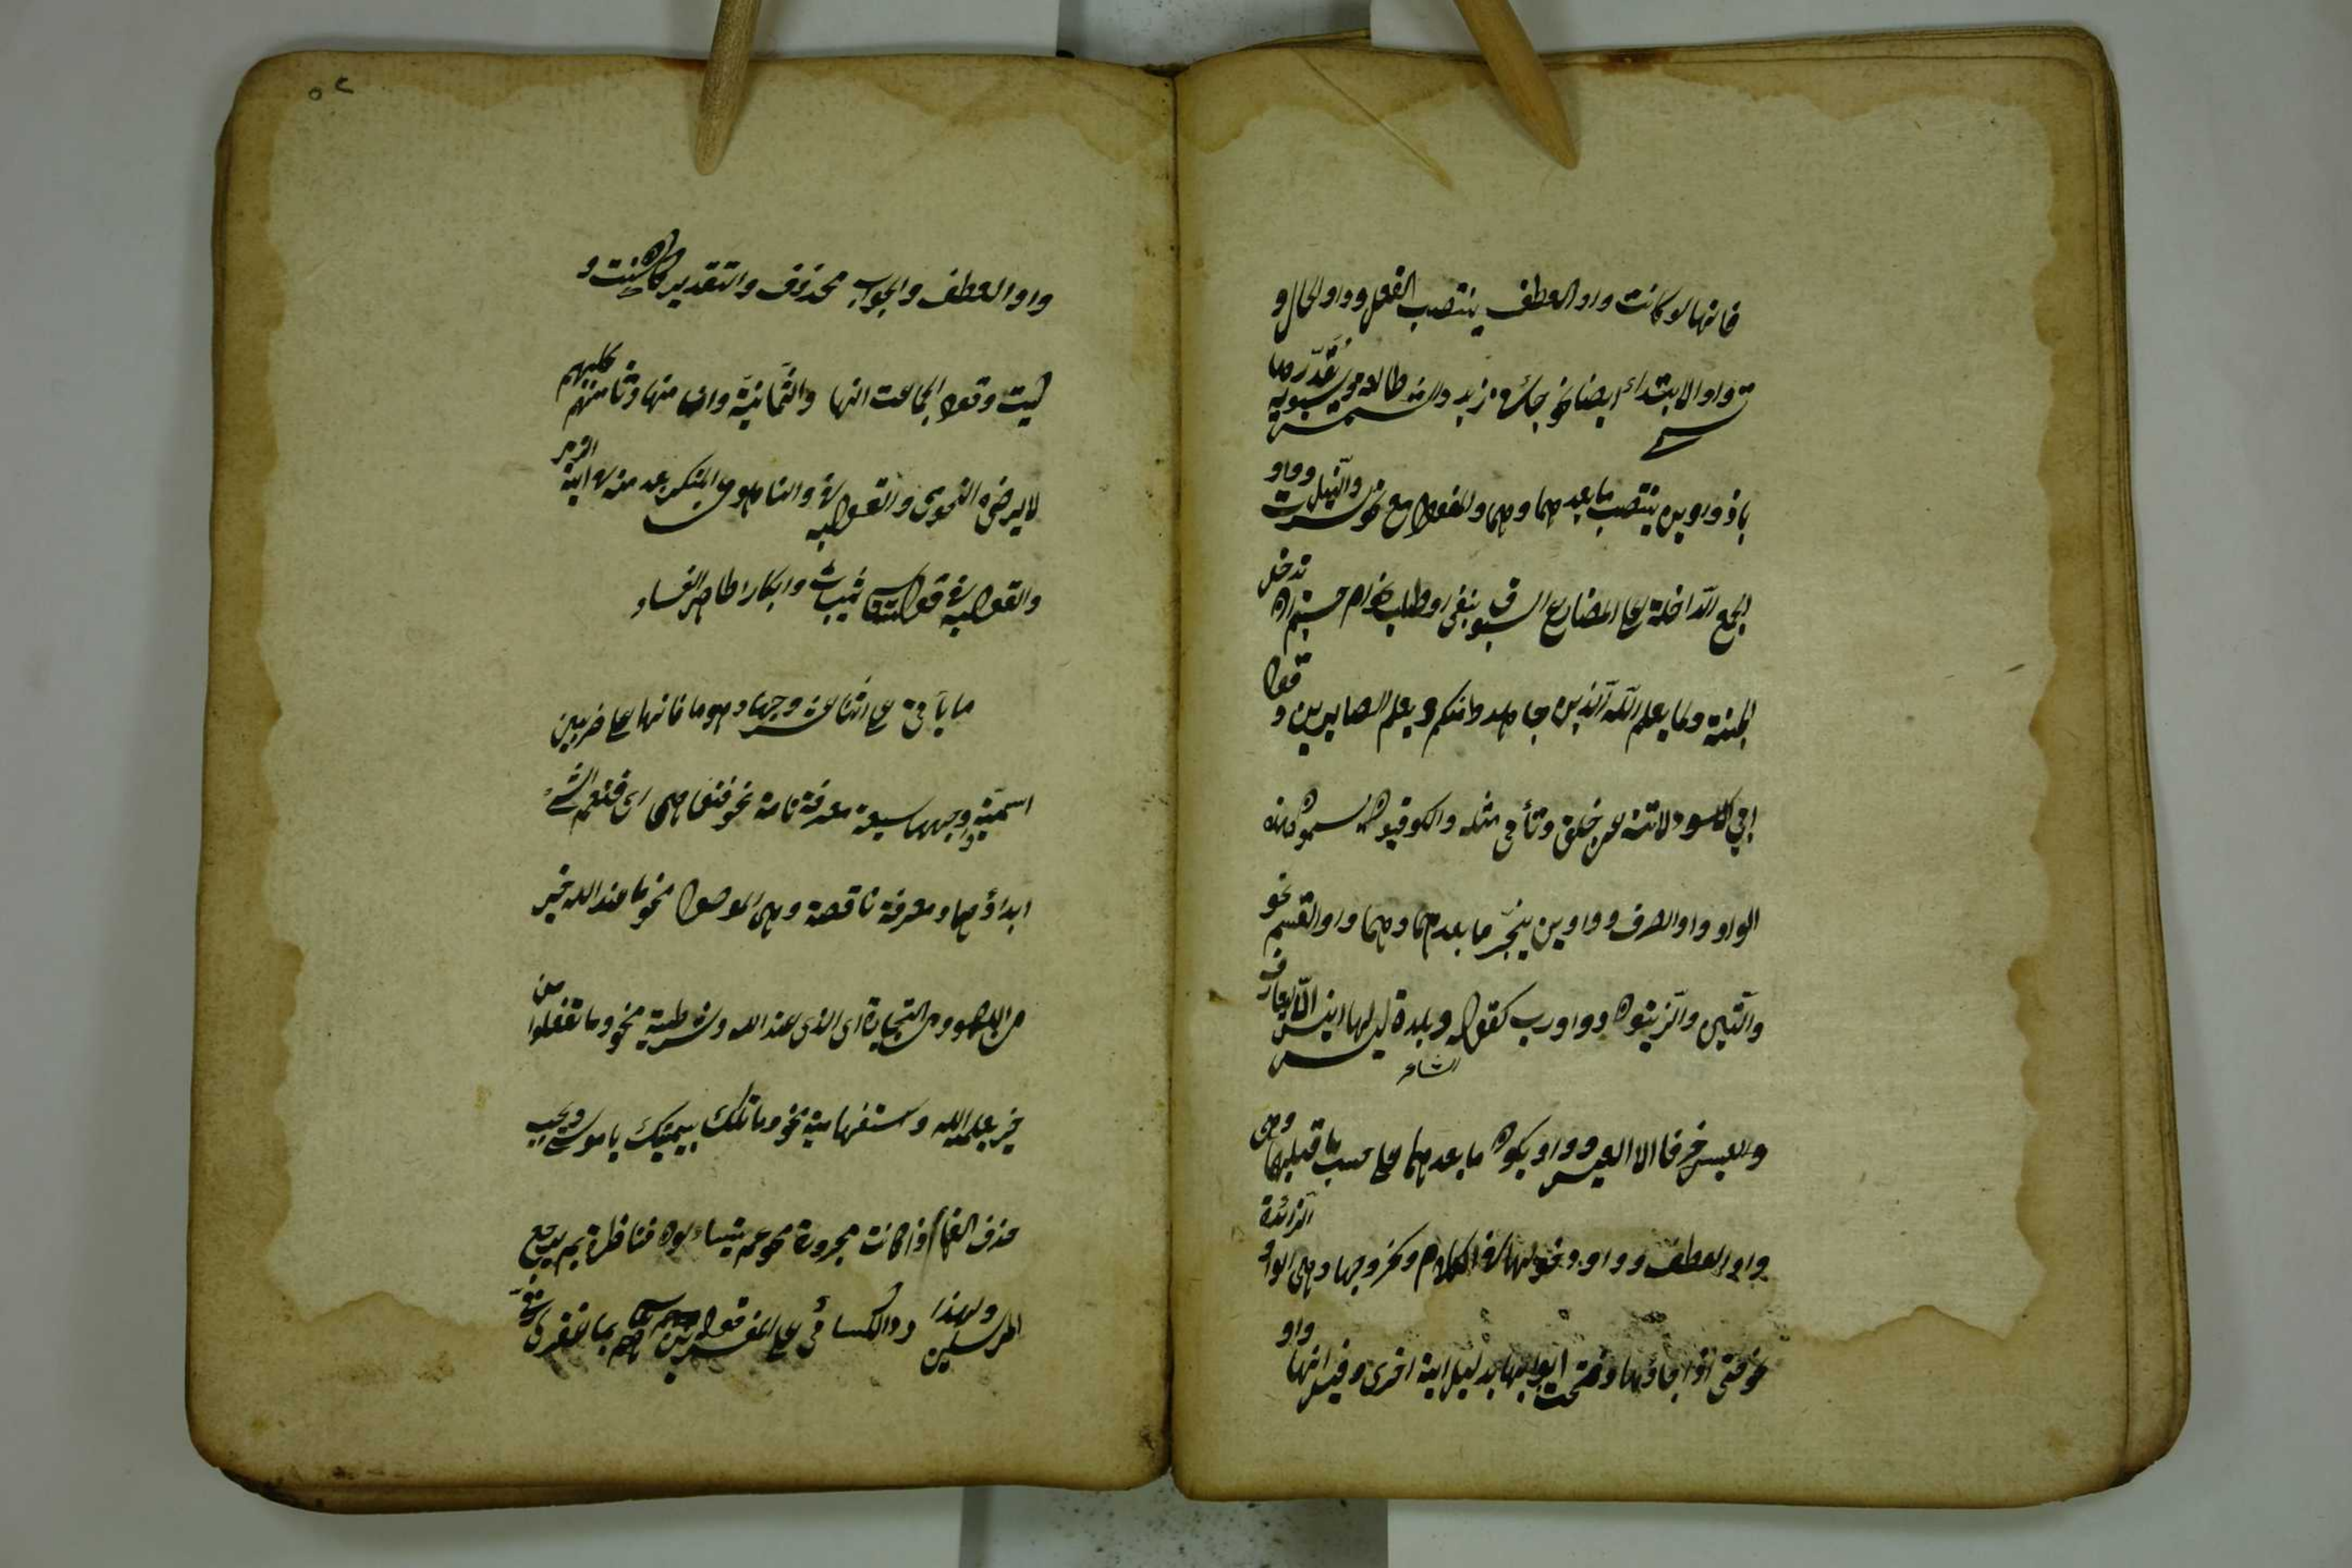 فانها لو كانت واو العطف ينتصب الفعل وواو الحال و
تسمى واو الابتداء ايضا نحو جاءنى زيد والشمس طالعة وسيبويه يقدرها
باذ وواوين ينتصب ما بعدهما وهما واو المفعول مع نحو سرت والنيل وواو
الجمع الداخلة على المضارع المسبوق بنفى او طلب نحو ام حسبتم ان تدخلوا
الجنة ولما يعلم الله الذين جاهدوا منكم ويعلم الصابرين و قول
ابى الاسود لا تنه عن خلق وتأتى مثله والكوفيون يسمون هذه
الواو واو الصرف وواوين ينجر ما بعدهما وهما واو القسم نحو
والتين والزيتون وواو رب كقول الشاعر وبلدة ليس لها انيس الا اليعافير
والا العيس وواو يكون ما بعدهما على حسب ما قبلها وهى
واو العطف وواو دخولها فى الكلام كخروجها وهى الواو الزائدة
نحو حتى اذا جاؤها وفتحت ابوابها بدليل اية اخرى وقيل انها واو
٥٢
واو العطف والجواب محذوف والتقدير كان كيت و
كيت وقول الجماعت انها واو الثمانية وان منها وثامنهم كلبهم
لا يرضاه النحوى والقول به فى والناهون عن المنكر ابعد منه فى اية الزمر
والقول به فى قوله تعالى ثيبات وابكارا ظاهر الفساد
ما يأتى على اثنا عشر وجها وهو ما فانها على ضربين
اسمية واوجهها سبعة معرفة تامة نحو فنعما هى اى فنعم الشئ
ابداؤها ومعرفة ناقصة وهى الموصولة نحو ما عند الله خير
من اللهو ومن التجارة اى الذى عند الله وشرطية نحو وما تفعلوا من
خير يعلمه الله واستفهامية نحو وما تلك بيمينك يا موسى ويجب
حذف الفها اذا كانت مجرورة نحو عم يتساءلون فناظرة بم يرجع
المرسلون ولهذا رد الكسائى على المفسرين قولهم بما غفر لى ربى